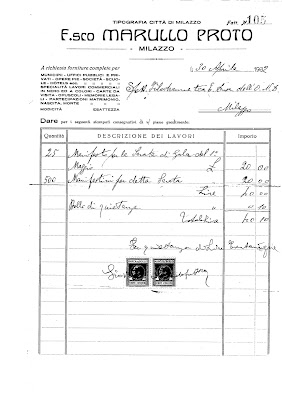 TIPOGRAFIA CITTÀ DI MILAZZO
Fatt. 105
F.sco MARULLO PROTO
MILAZZO
A richiesta forniture complete per
MUNICIPI - UFFICI PUBBLICI E PRI-
VATI - OPERE PIE - SOCIETÀ - SCUO-
LE - HÔTELS ecc.
SPECIALITÀ LAVORI COMMERCIALI
IN NERO ED A COLORI - CARTE DA
VISITA - OPUSCOLI - MEMORIE LEGA-
LI - PARTECIPAZIONI MATRIMONIO,
NASCITA, MORTE
MODICITÀ ESATTEZZA
30 Aprile
Milazzo
Dare per i seguenti stampati consegnativi di pieno gradimento.
Quantità DESCRIZIONE DEI LAVORI Importo
25 Manifesti per la Serata di Gala del 1°
Maggio L 20 00
500 Manifestini per detta Serata 20 00
Lire 40 00
Bollo di quietanza 0 10
Totale Lire 40 10
Per quietanza di Lire